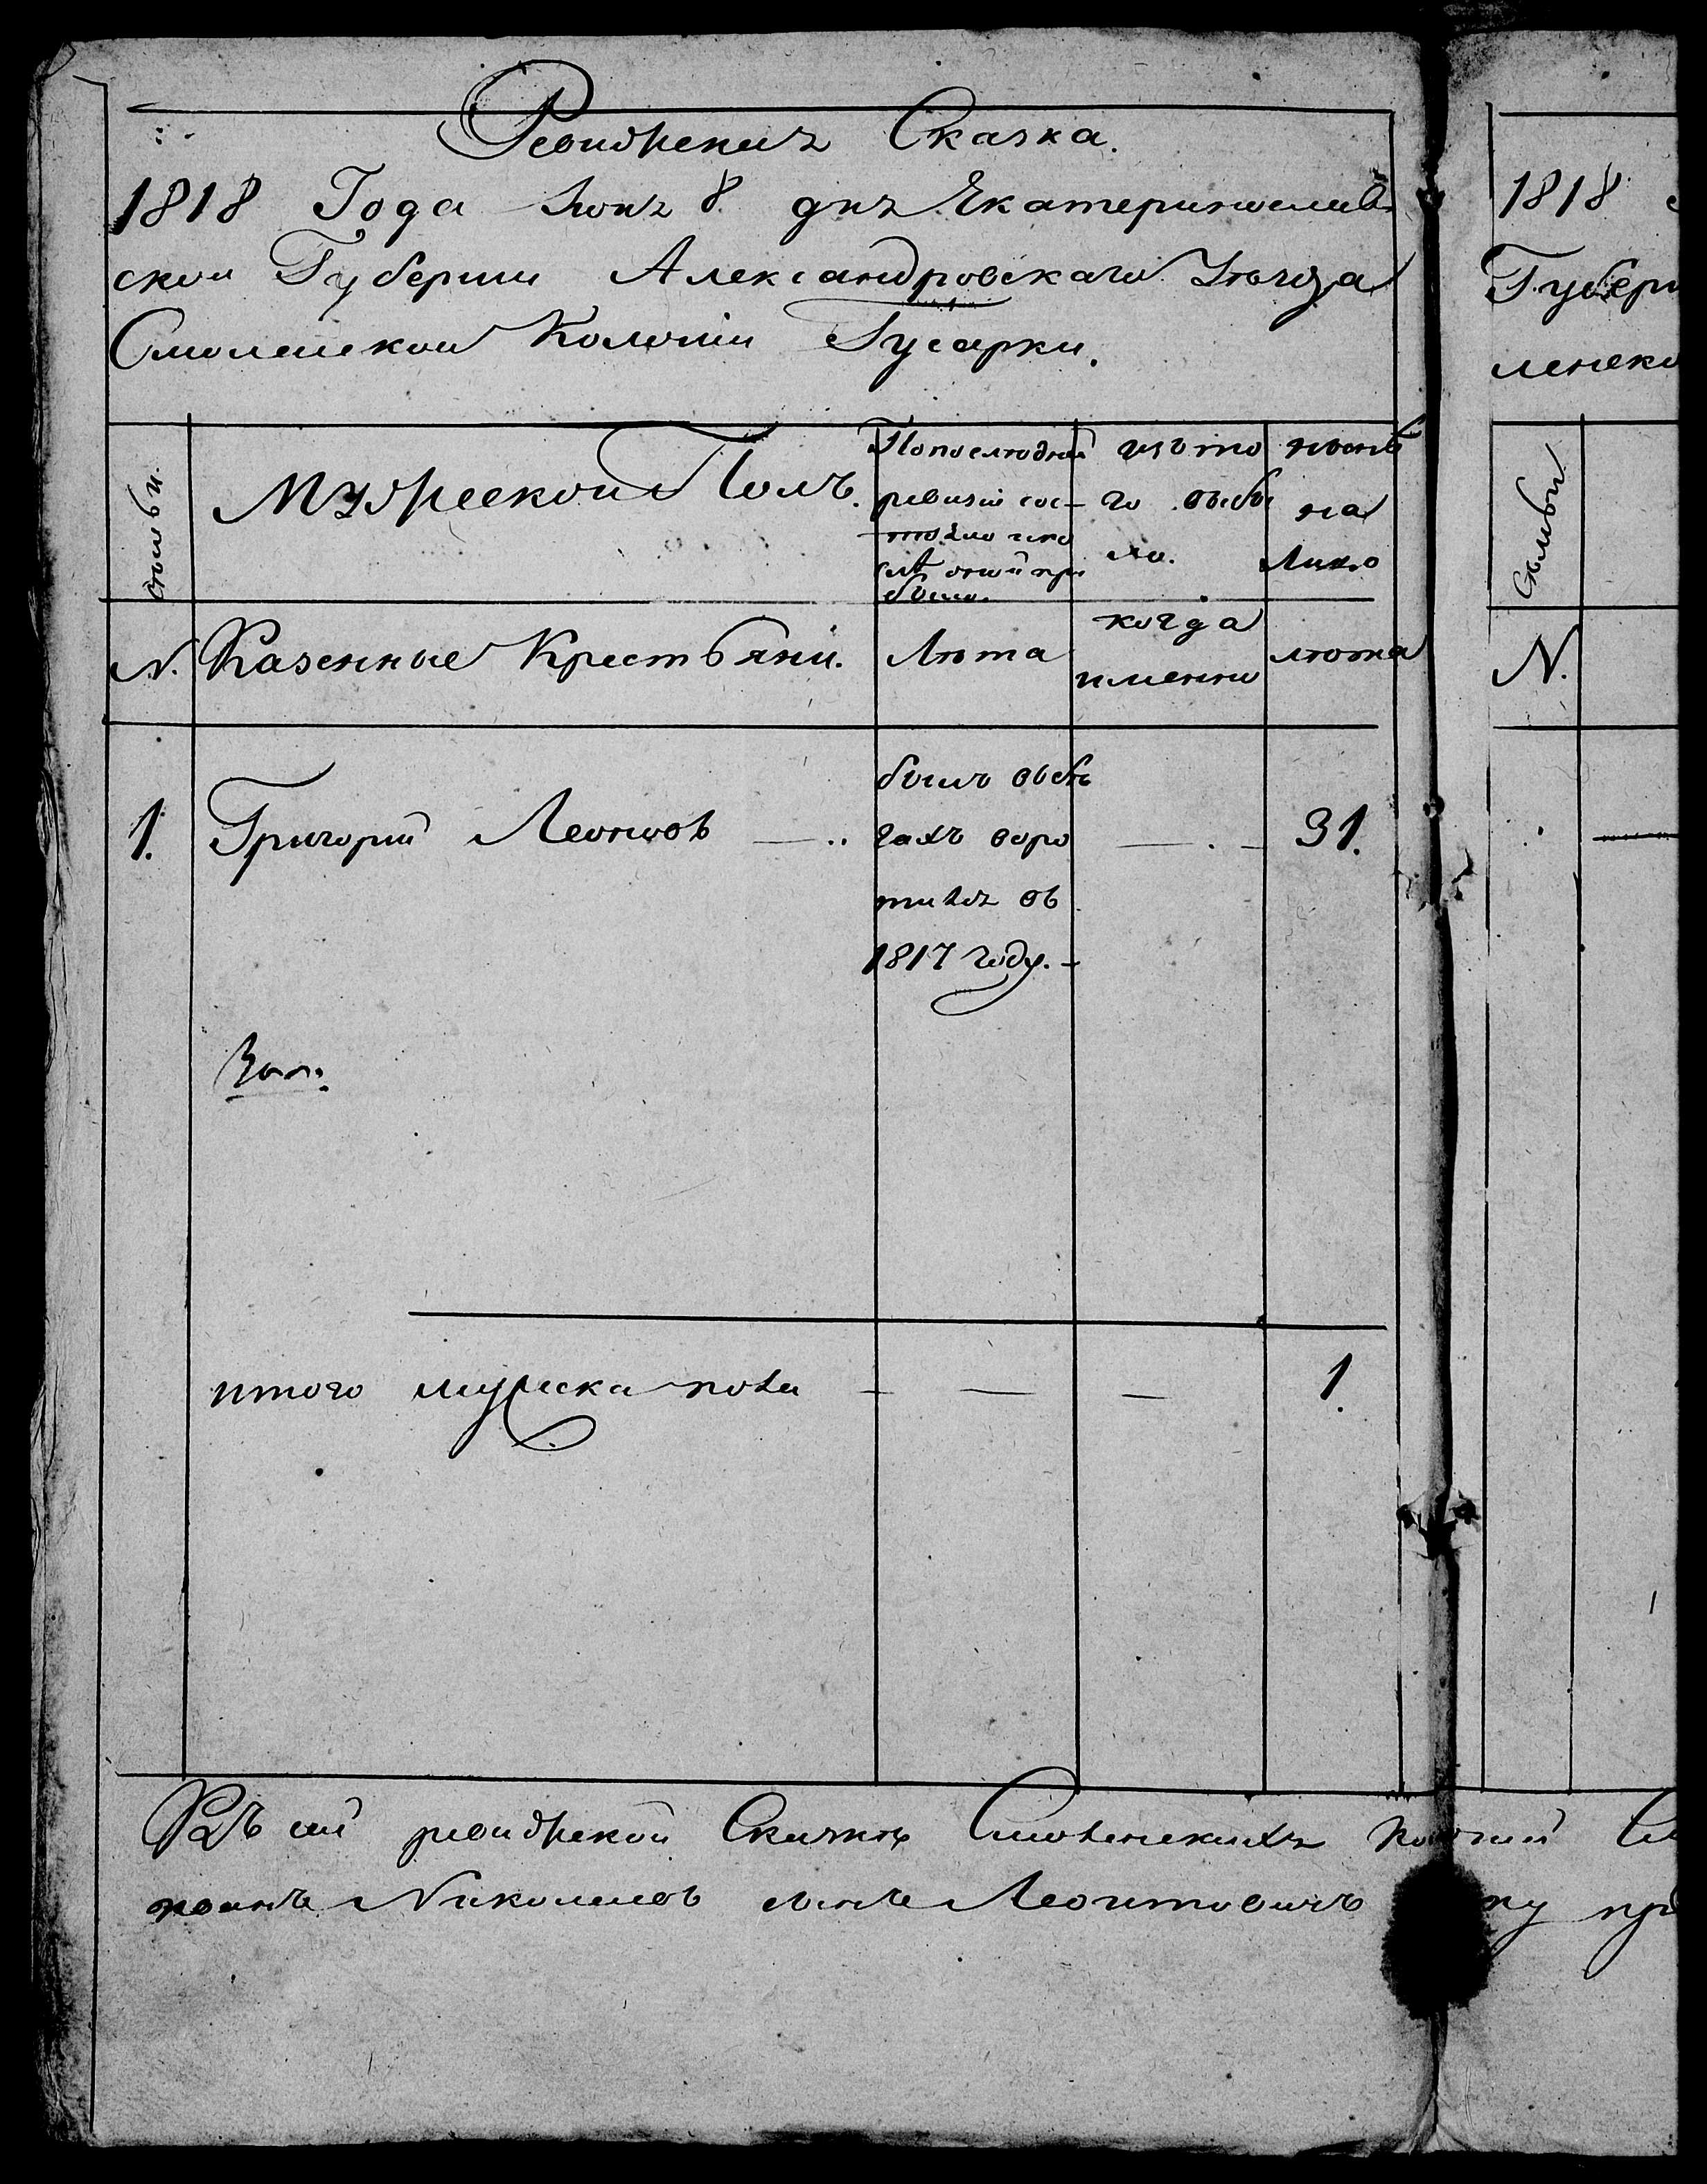 Ревижская Сказка.
1818 Года Июня 8 дня Екатеринослав
ской Губернии Александровскаго Уѣзда
Смоленской Колонiи Гусарки.
Мужескои Полъ.
По последней
ревизiи сос-
тояло и по
слѣ оной при
было.
изъ то
го выбы
ло.
нынѣ
на
Лицо
N. Казенные Крестьяни.
Лѣта
когда
именно
лѣта
1. Григорий Леонтов
былъ въ бѣ
гахъ воро
тился въ
1817 году.
31.
итого мужеска пола 1.
Къ сей ревижской Сказкѣ Смоленскихъ
Николаевъ сынъ Леонтовичъ
1818
Губерн
ленско
Семьи
N.